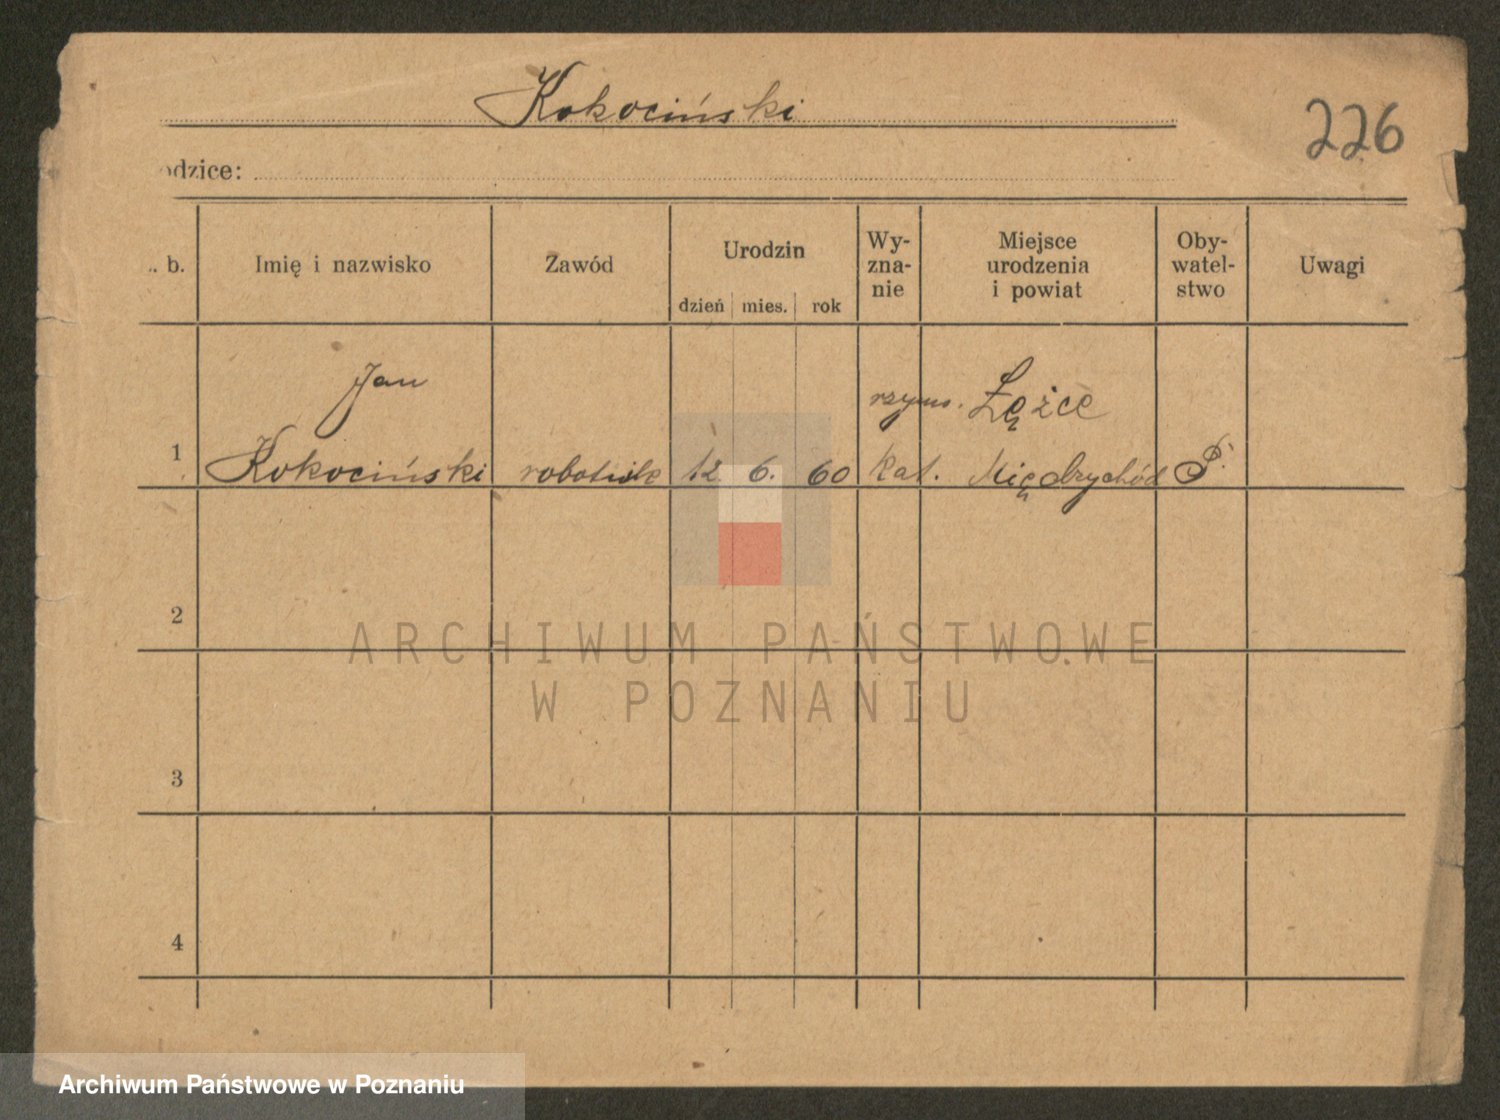 Kokociński
226
odzice:
. b.
Imię i nazwisko
Zawód
Urodzin
dzień mies. rok
Wy-
zna-
nie
Miejsce
urodzenia
i powiat
Oby-
watel-
stwo
Uwagi
Jan rzyms. Łężce
1 Kokociński robotnik 12. 6. 60 kat. Międzychód P.
2
3
4
ARCHIWUM PAŃSTWOWE
W POZNANIU
Archiwum Państwowe w Poznaniu